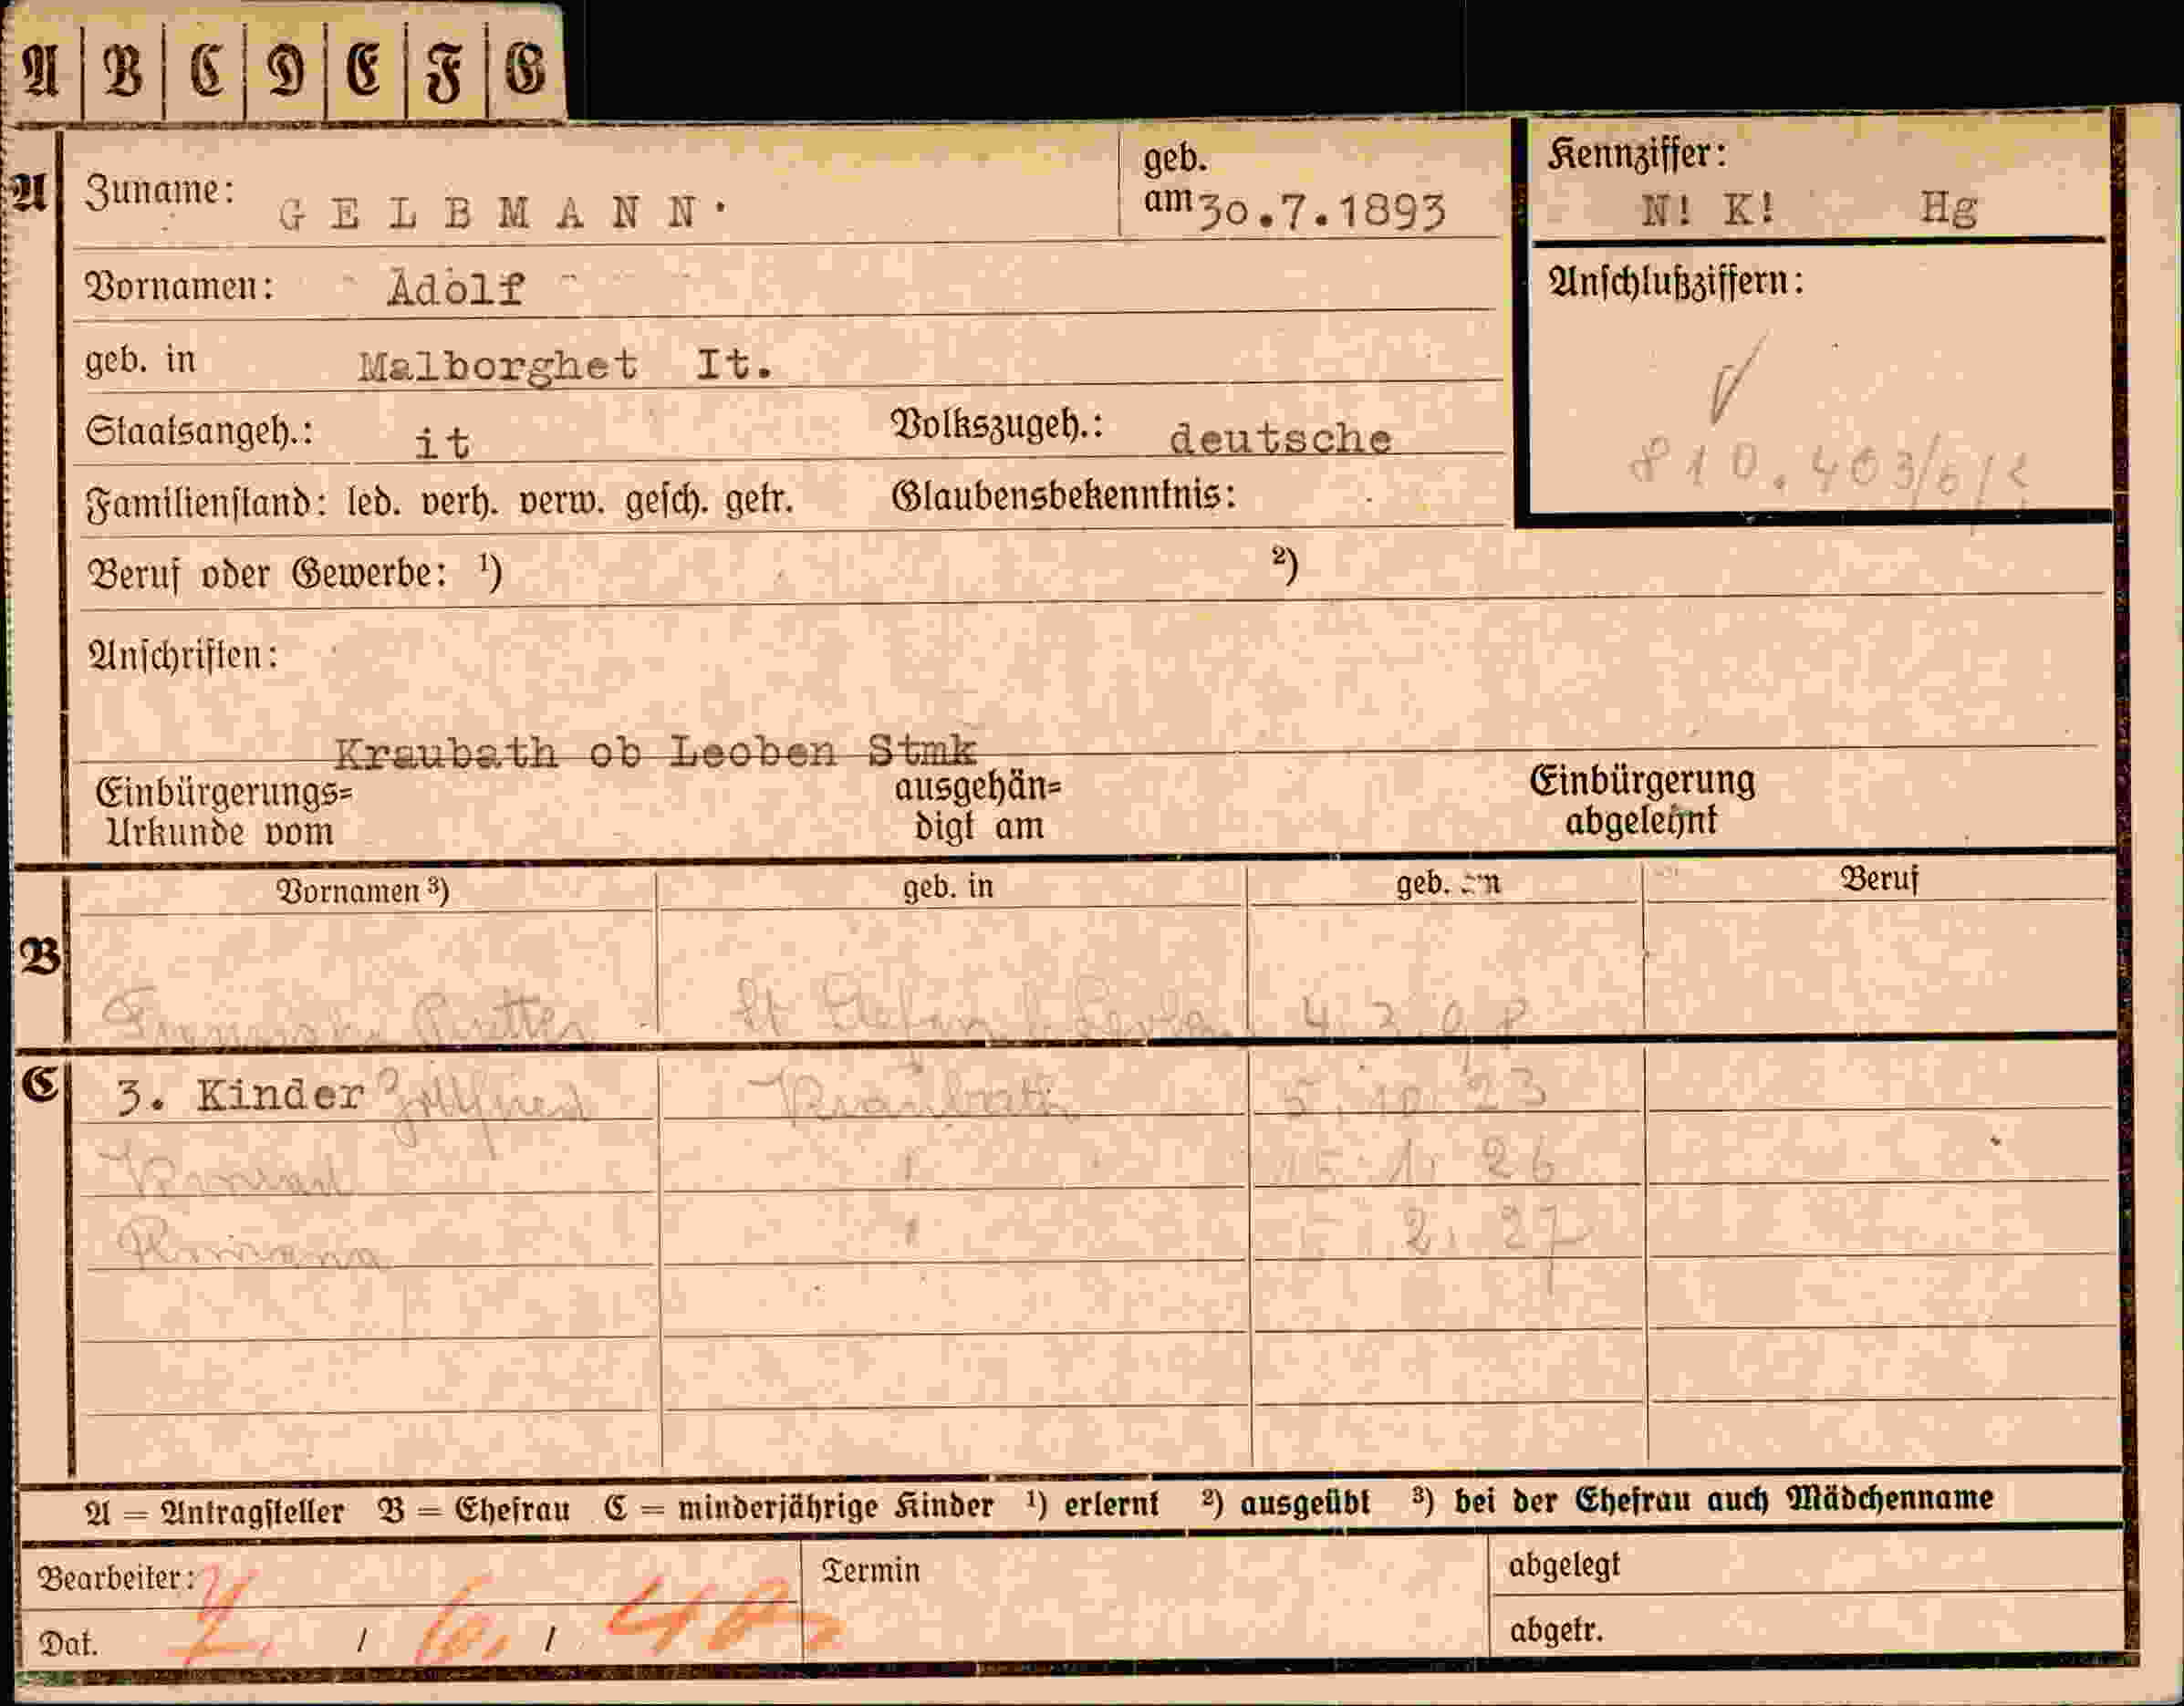 A B C D E F G
A Zuname: GELBMANN. geb. am 30.7.1893
Kennziffer: N! K! Hg
Vornamen: Adolf
Anschlußziffern:
geb. in Malborghet It.
Staatsangeh.: it Volkszugeh.: deutsche
810.403/6/
Familienstand: led. verh. verw. gesch. getr. Glaubensbekenntnis:
Beruf oder Gewerbe: 1) 2)
Anschriften:
Kraubath ob Leoben Stmk
Einbürgerungs= Urkunde vom
ausgehän= digt am
Einbürgerung abgelehnt
Vornamen 3) geb. in geb. am Beruf
B
St Stefan Leoben
C 3. Kinder Gottfried Kraubath 5. 10. 23
Konrad " 1. 26
Romana " 2. 27
A = Antragsteller B = Ehefrau C = minderjährige Kinder 1) erlernt 2) ausgeübt 3) bei der Ehefrau auch Mädchenname
Bearbeiter: Termin abgelegt
Dat. / 6. / 40
abgetr.